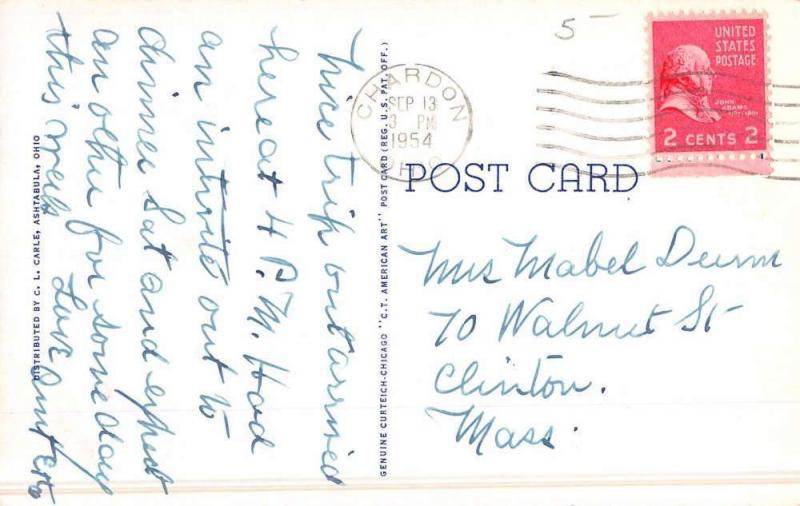 Nice trip out arrived
here at 4 P.M. Had
an invite out to
dinner Sat and expect
an other for some day
this week Love
DISTRIBUTED BY C. L. CARLE, ASHTABULA, OHIO
GENUINE CURTEICH-CHICAGO "C.T. AMERICAN ART" POST CARD (REG. U.S. PAT. OFF.)
5-
CHARDON
SEP 13
3 PM
1954
OHIO
UNITED
STATES
POSTAGE
JOHN
ADAMS
2 CENTS 2
POST CARD
Mrs Mabel
70 Walnut St
Clinton.
Mass.